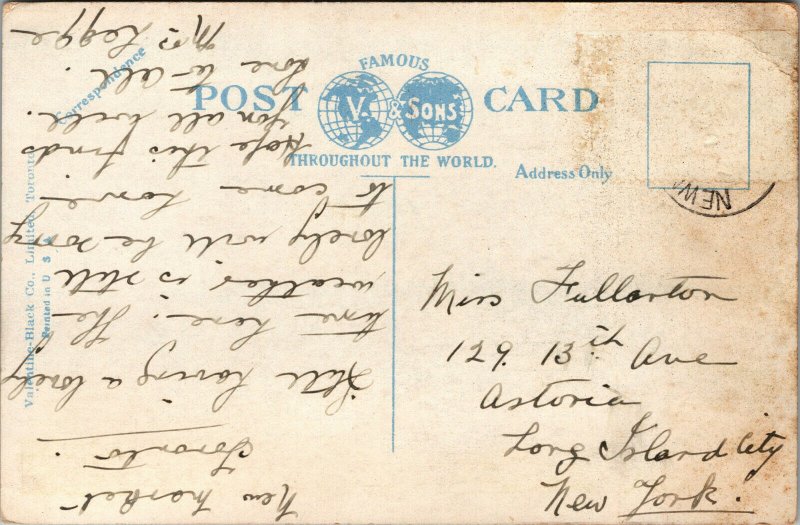 Correspondence
FAMOUS
POST CARD
V. & SONS
THROUGHOUT THE WORLD.
Address Only
Valentine-Black Co., Limited, Toronto
Printed in U S A
NEW
New Market
Toronto.
Still having a lovely
time here. The
weather is still
lovely will be sorry
to come home
Hope this finds
you all well.
Love to all.
Mrs Legge
Miss Fullarton
129. 13th Ave
Astoria
Long Island City
New York.